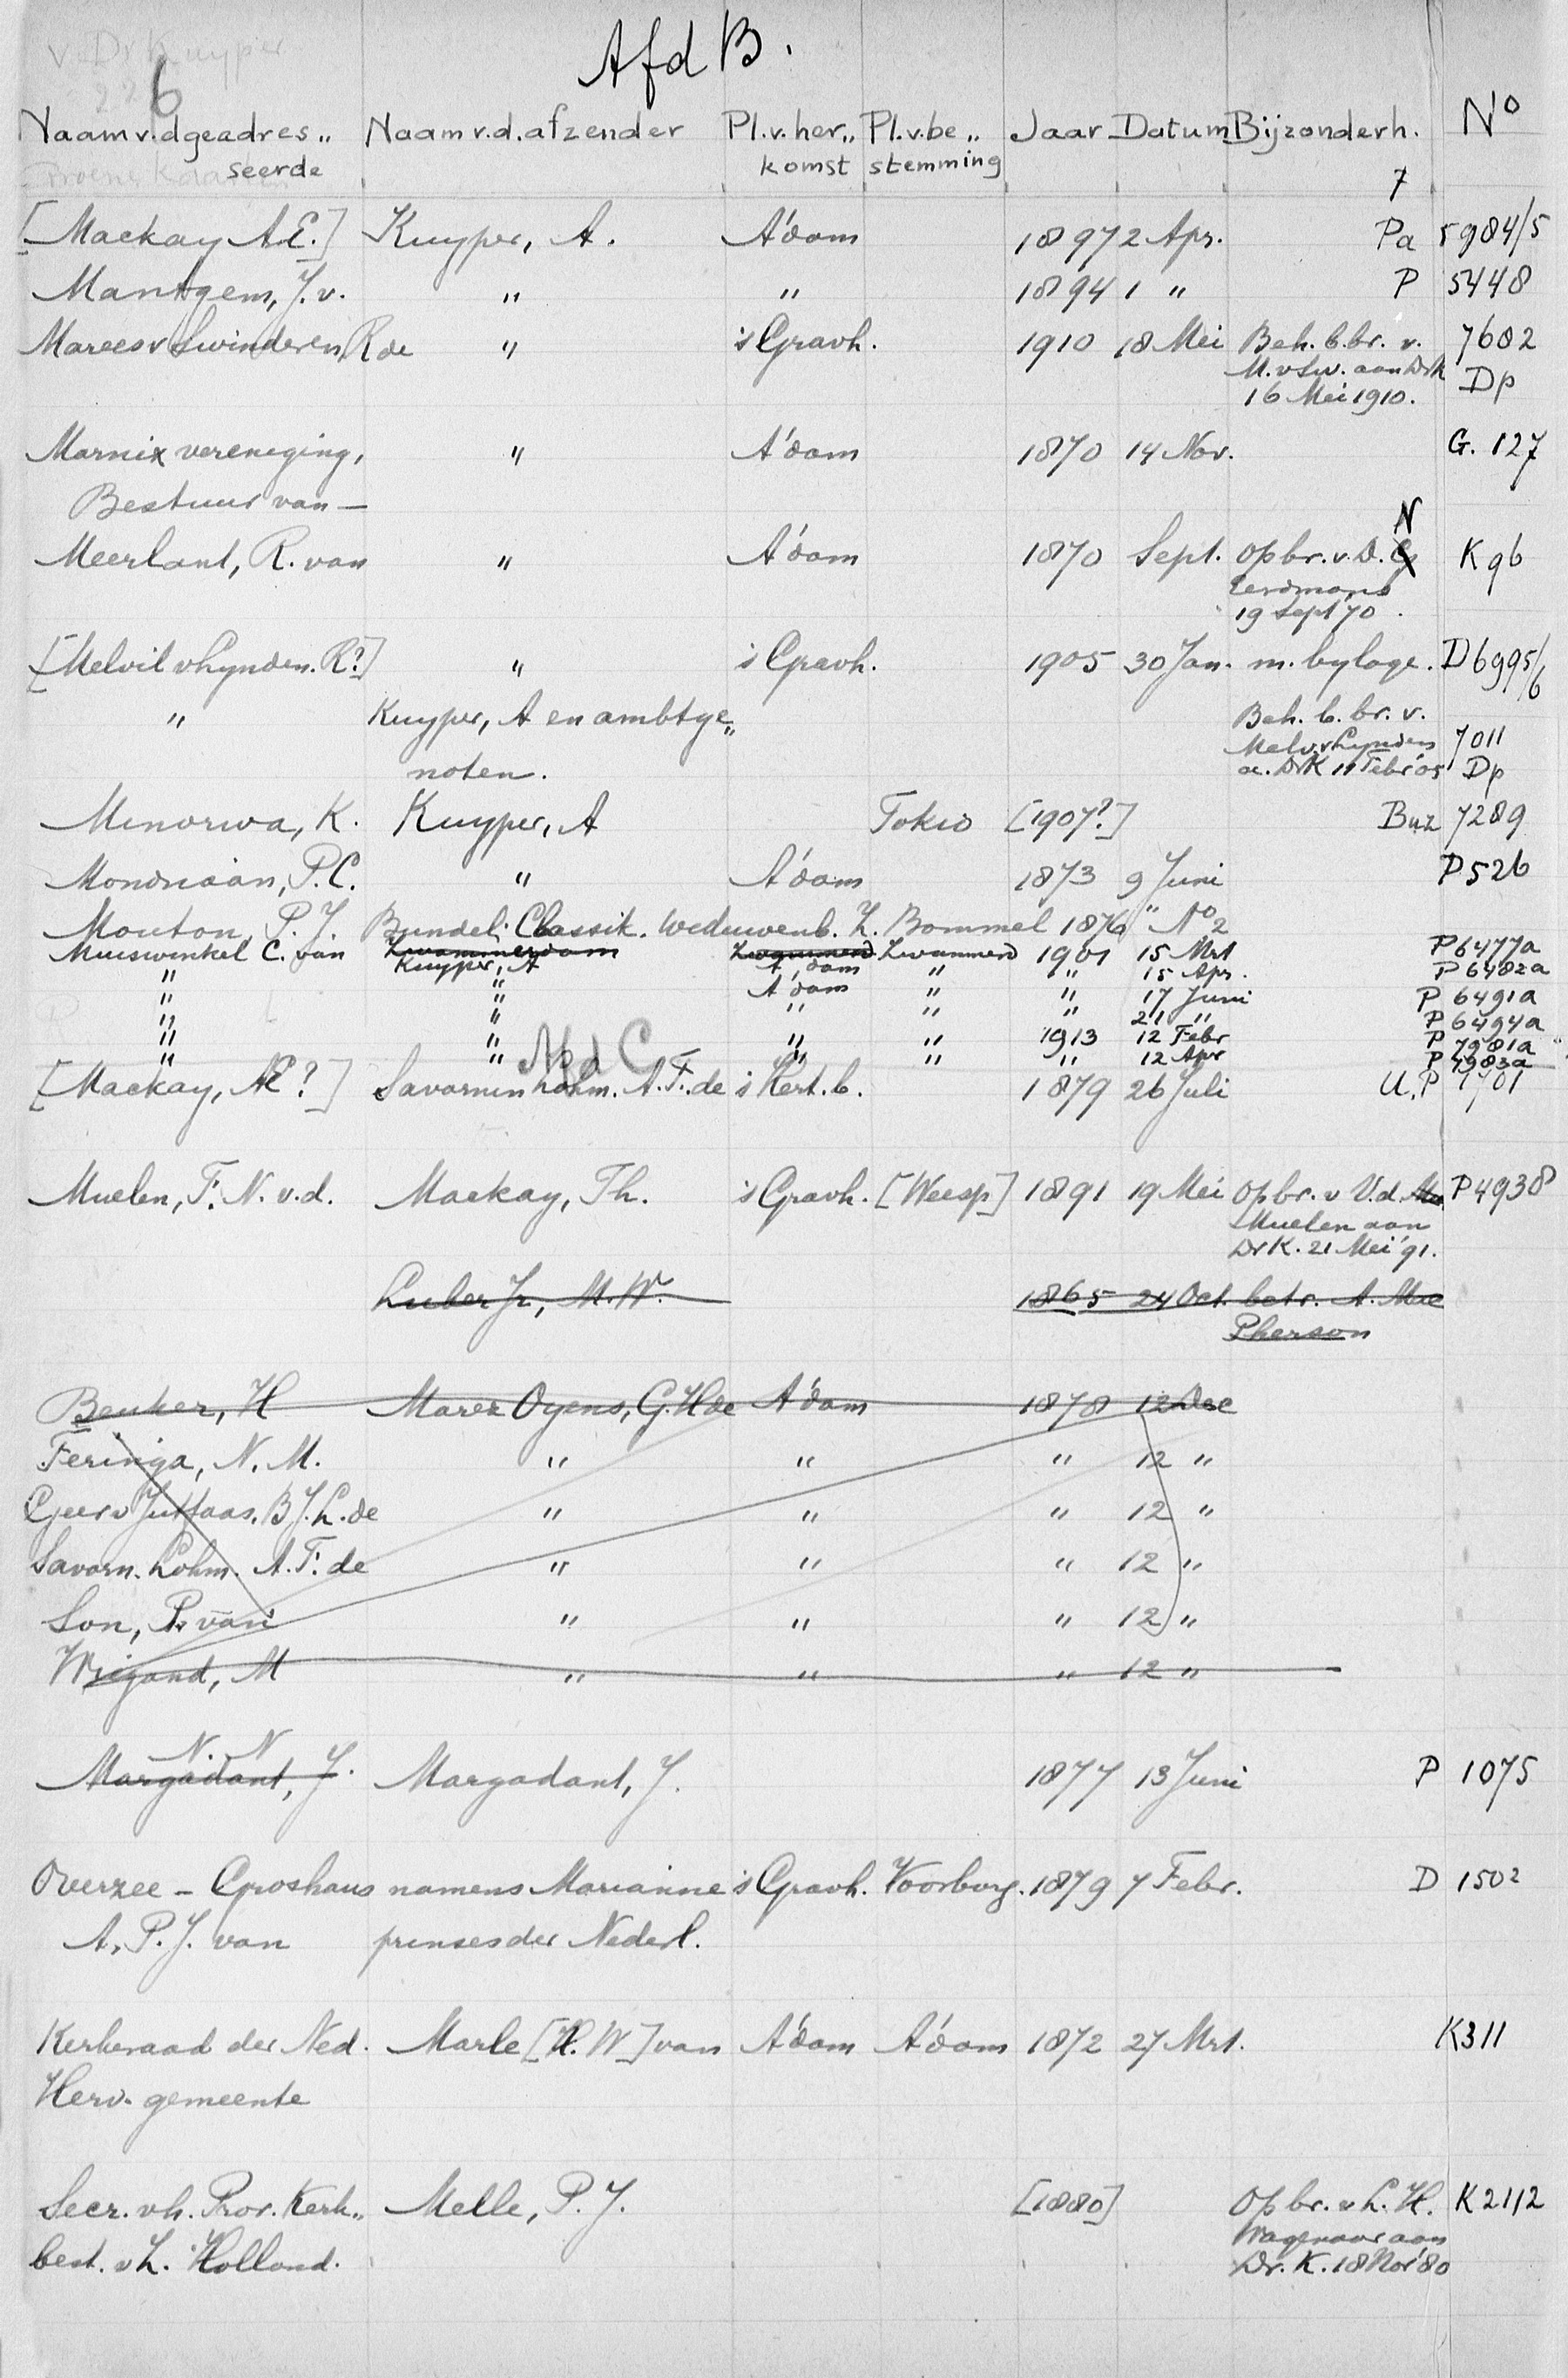 v. Dr Kuyper
6
Afd B.
Naam v.d geadres„ Naam v.d. afzender Pl. v. her„ Pl. v. be„ Jaar Datum Bijzonderh. No
seerde komst stemming
7
[Mackay A.E.] Kuyper, A. A'dam 1897 2 Apr. Pa 5984/5
Mantgem, J. v. " " 1894 1 " P 5448
Marees v Swinderen R de " 's Gravh. 1910 18 Mei Beh. b. br. v. 7682
M. v Sw. aan Dr K Dp
16 Mei 1910.
Marnix vereniging, " A'dam 1870 14 Nov. G. 127
Bestuur van —
N
Meerlant, R. van " A'dam 1870 Sept. op br. v. D. K 96
Eerdmans
19 Sept 70.
[Melvil v Lynden. R?] " 's Gravh. 1905 30 Jan. m. bylage. D 6995/6
" Kuyper, A en ambtge„ Beh. b. br. v.
Melv. v Lynden 7011
noten. a. Dr K 11 Febr '05 Dp
Minorwa, K. Kuyper, A Tokio [1907?] Buz 7289
Mondriaan, P.C. " A'dam 1873 9 Juni P 526
Mouton, P. J. Bundel: Classik. Weduwenb. Z. Bommel 1876 " No 2
Muiswinkel C. van Zwammerdam Zwammerd. Zwammerd 1901 15 Mrt P 6477a
" Kuyper, A A'dam " " 15 Apr. P 6482a
" " A'dam " " 17 Juni P 6491a
" " " " " 21 " P 6494a
" " " " 1913 12 Febr P 7981a
" " " " " 12 Apr P 7983a
Afd C
[Mackay, AE?] Savornin Lohm. A. F. de 's Hert. b. 1879 26 Juli U.P 1701
Muelen, F. N. v.d. Mackay, Th. 's Gravh. [Weesp] 1891 19 Mei op br. v V.d. Mu P 4938
Muelen aan
Dr K. 21 Mei '91.
Luber Jr, M. W. 1865 24 Oct. betr. A. Mac
Pherson
Beuker, H Marez Oyens, G. H de A'dam 1878 12 Dec
Feringa, N. M. " " " 12 "
Geer v Jutfaas, B J. L. de " " " 12 "
Savorn. Lohm. A. F. de " " " 12 "
Son, P. van " " " 12 "
Wigand, M " " " 12 "
N. N
Margadant, J. Margadant, J. 1877 13 Juni P 1075
Overzee - Groshans namens Marianne 's Gravh. Voorburg. 1879 7 Febr. D 1502
A. P. J. van prinses der Nederl.
Kerkeraad der Ned. Marle [H. W] van A'dam A'dam 1872 27 Mrt. K311
Herv. gemeente
Secr. v h. Prov. Kerk„ Melle, P. J. [1880] Op br. v L. H. K 2112
Wagenaar aan
best. v Z. Holland. Dr. K. 18 Nov '80